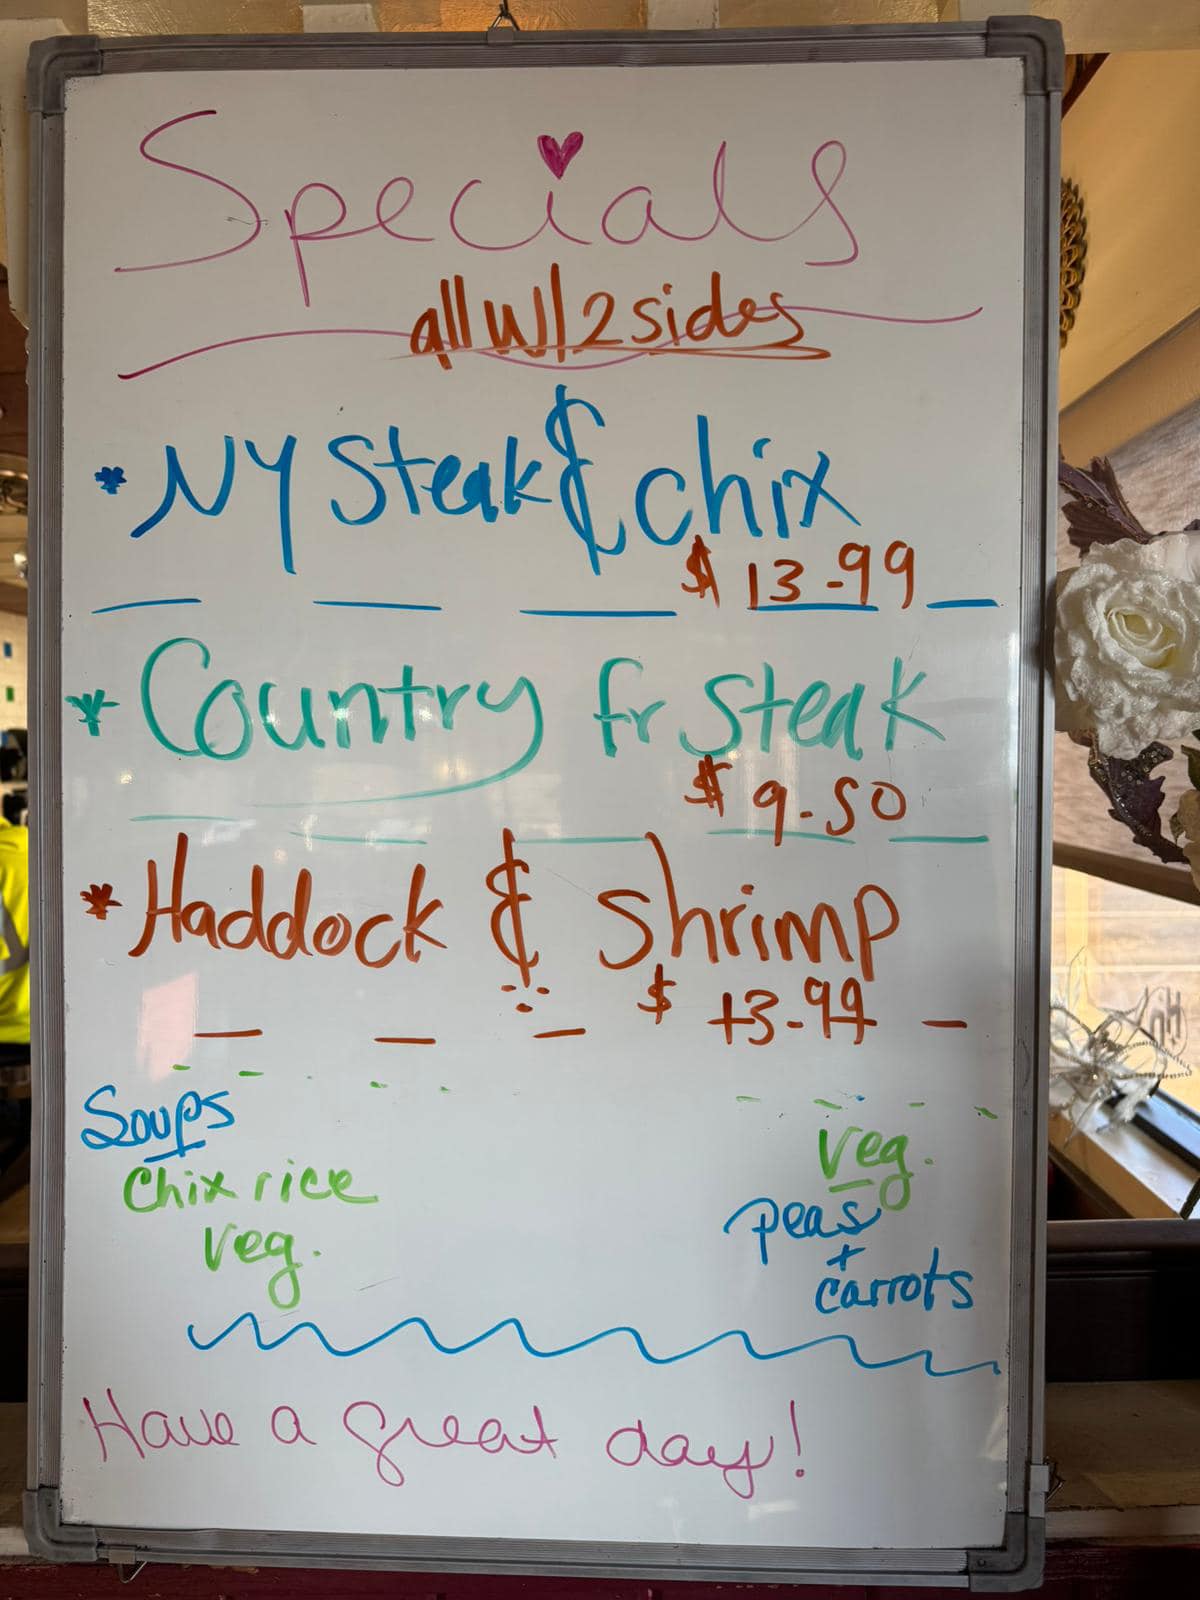 Specials
all w/ 2 sides
* NY Steak & chix
$ 13.99
* Country fr Steak
$ 9.50
* Haddock & Shrimp
$ 13.99
Soups
Chix rice
Veg.
Veg.
peas
+
carrots
Have a great day!